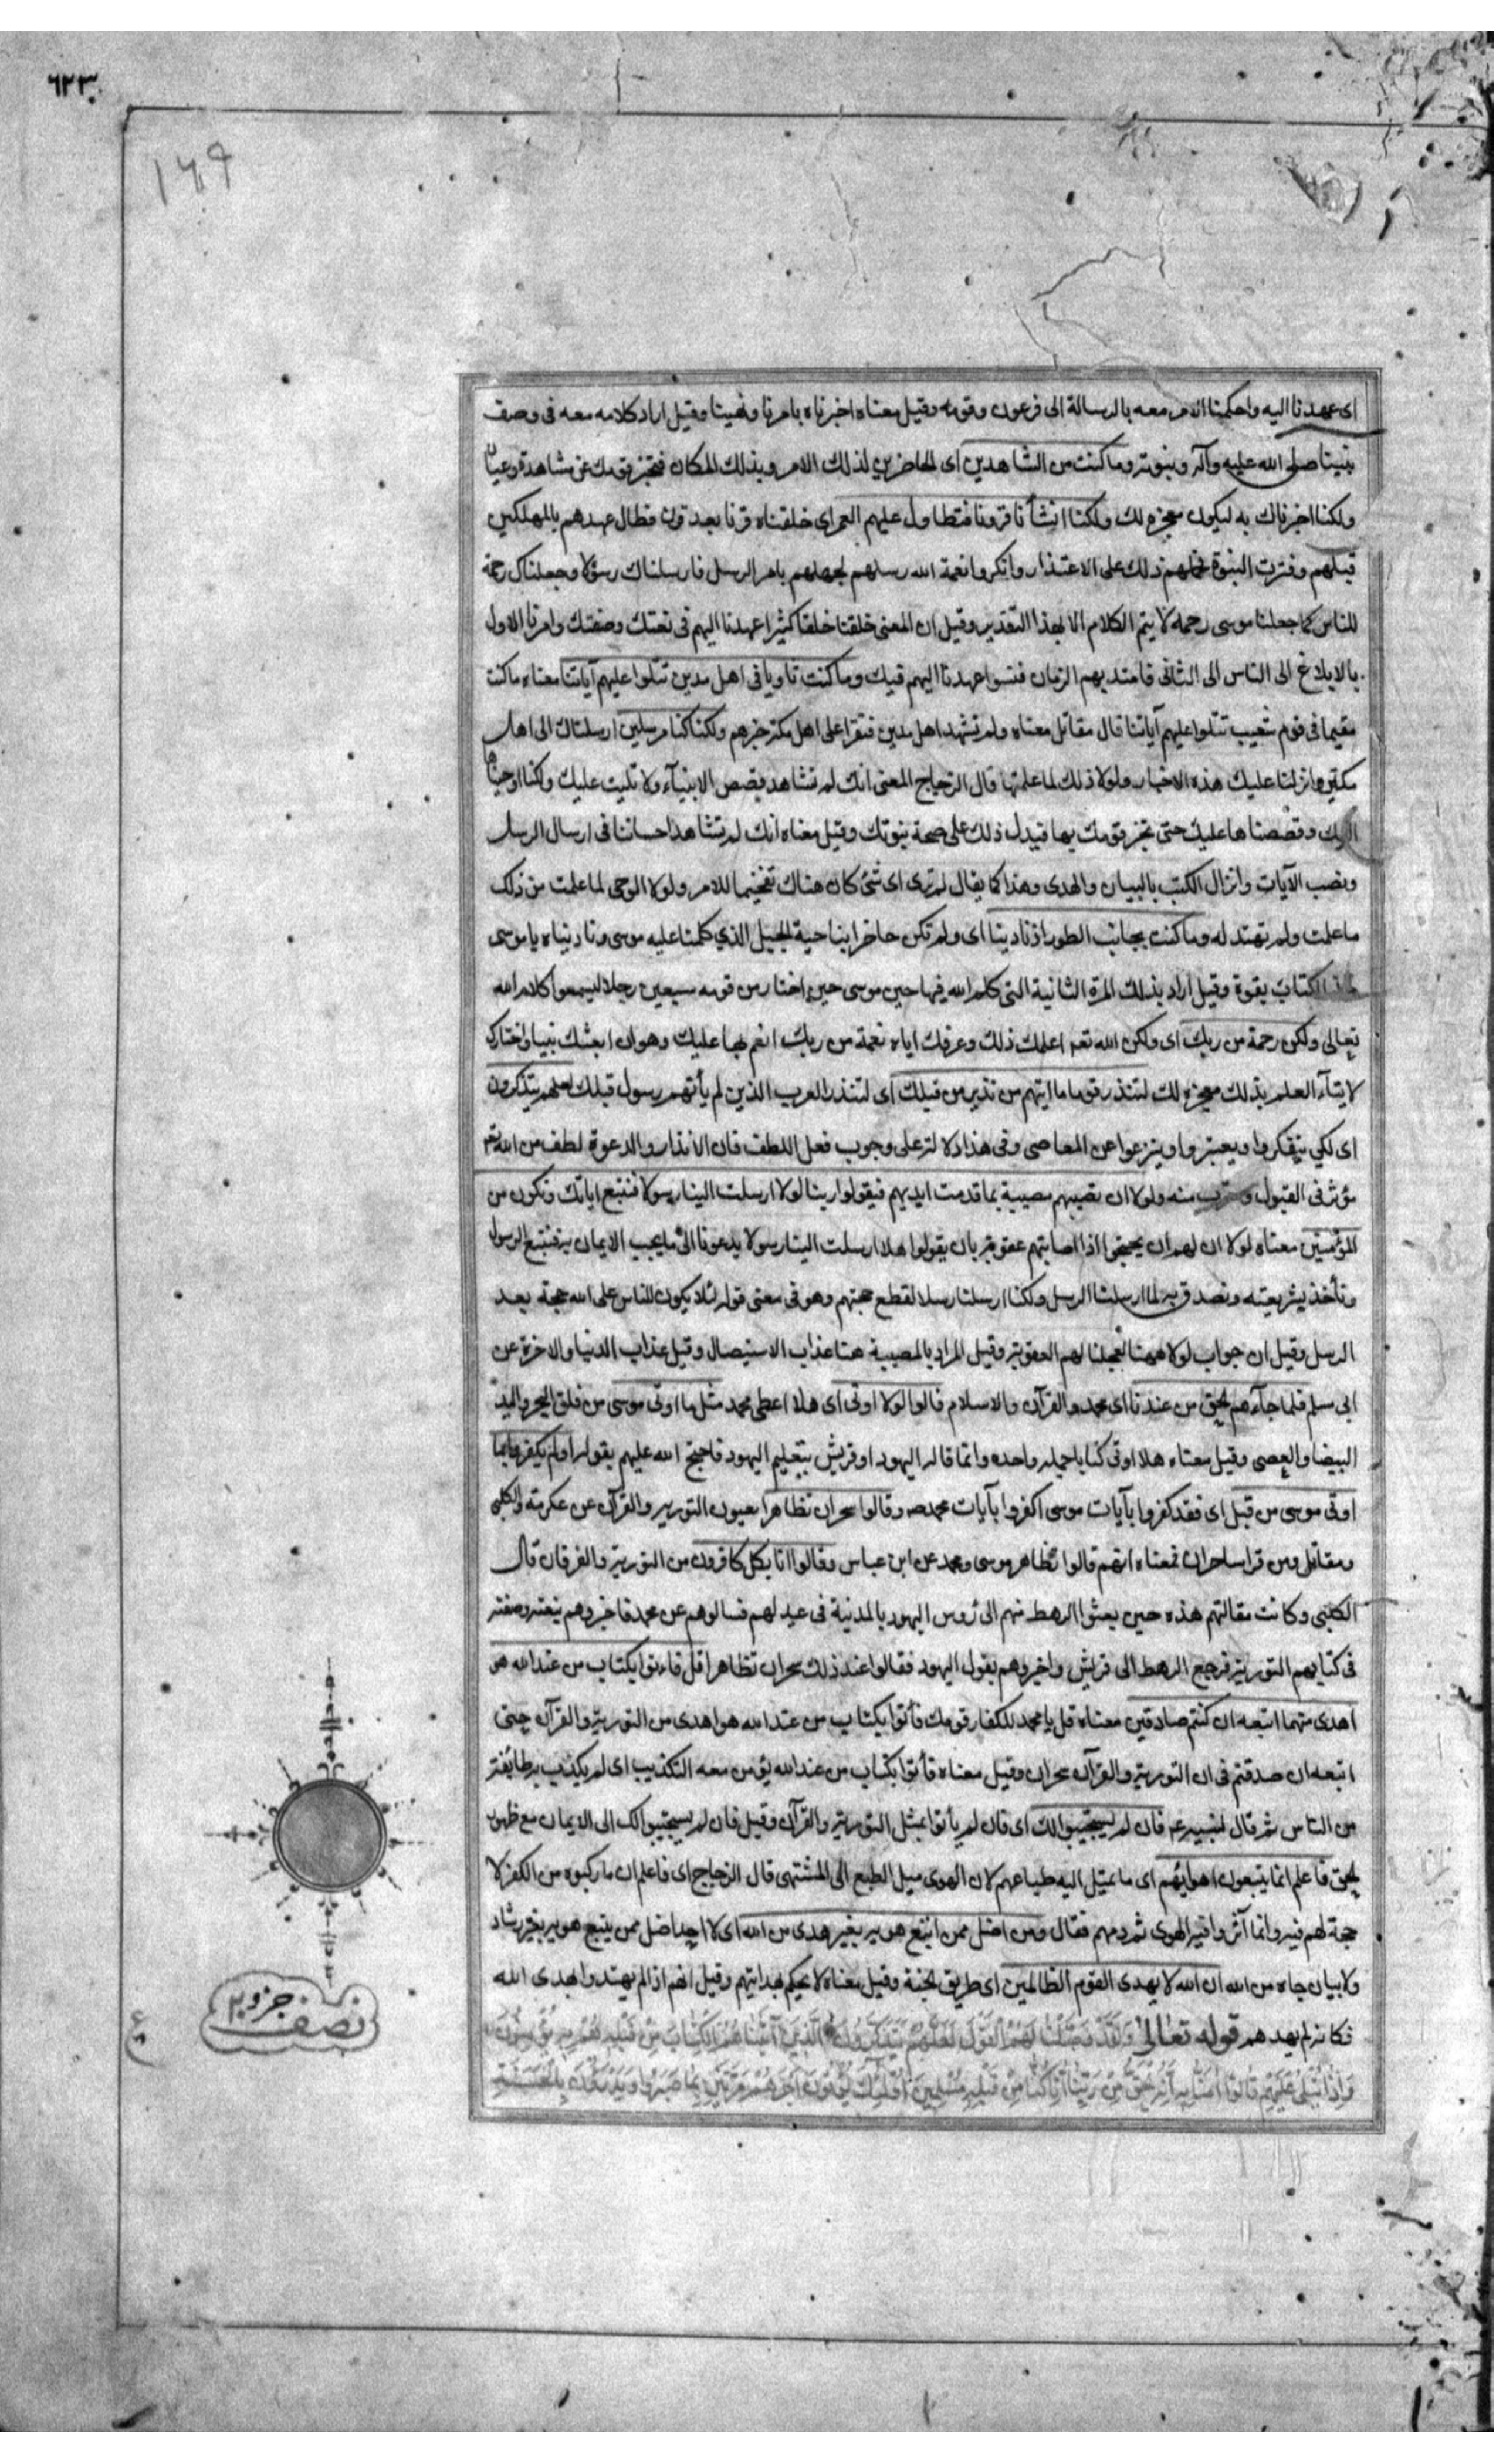 ٦٢٣
١٦٩
اى عهدنا اليه واحكمنا الامر معه بالرسالة الى فرعون وقومه وقيل معناه اخبرناه بامرنا ونهينا وقيل اراد كلامه معه فى وصف
نبينا صلى الله عليه وآله ونبوته وما كنت من الشاهدين اى الحاضرين لذلك الامر وبذلك المكان فتخبر قومك عن مشاهدة وعيان
ولكنا اخبرناك به ليكون معجزه لك ولكنا انشأنا قرونا فتطاول عليهم العمر اى خلقناه قرنا بعد قرن فطال عهدهم بالمهلكين
قبلهم وفترت النبوة فحملهم ذلك على الاعتذار وانكروا نعمة الله رسلهم لجهلهم بامر الرسل فارسلناك رسولا وجعلناك رحمة
للناس كما جعلنا موسى رحمه لا يتم الكلام الا بهذا التقدير وقيل ان المعنى خلقنا خلقا كثيرا عهدنا اليهم فى نعتك وصفتك وامرنا الاول
بالابلاغ الى الناس الى الثانى فامتد بهم الزمان فنسوا عهدنا اليهم فيك وما كنت ثاويا فى اهل مدين تتلوا عليهم آياتنا معناه ما كنت
مقيما فى قوم شعيب تتلوا عليهم آياتنا قال مقاتل معناه ولم تشهد اهل مدين فتقرا على اهل مكة خبرهم ولكنا كنا مرسلين ارسلناك الى اهل
مكة وانزلنا عليك هذه الاخبار ولولا ذلك لما علمتها قال الزجاج المعنى انك لم تشاهد قصص الانبيآء ولا تليت عليك ولكنا اوحيناها
اليك وقصصناها عليك حتى تخبر قومك بها فيدل ذلك على صحة نبوتك وقيل معناه انك لم تشاهد احساننا فى ارسال الرسل
ونصب الآيات وانزال الكتب بالبيان والهدى وهذا كما يقال لم تدر اى شئ كان هناك تفخيما للامر ولولا الوحى لما علمت من ذلك
ما علمت ولم تهتد له وما كنت بجانب الطور اذ نادينا اى ولم تكن حاضرا بناحية الجبل الذي كلمنا عليه موسى ونادينا ه ياموسى
خذ الكتاب بقوة وقيل اراد بذلك المرة الثانية التى كلم الله فيها حين موسى حين اختار من قومه سبعين رجلا ليسمعوا كلام الله
تعالى ولكن رحمة من ربك اى ولكن الله تعه اعلمك ذلك وعرفك اياه نعمة من ربك انعم بها عليك وهو ان بعثك نبيا واختارك
لايتآء العلم بذلك معجزه لك لتنذر قوما ما اتيهم من نذير من قبلك اى لتنذر العرب الذين لم يأتهم رسول قبلك لعلهم يتذكرون
اى لكي يتفكروا ويعتبروا وينزعوا عن المعاصى وفى هذا دلالة على وجوب فعل اللطف فان الانذار والدعوة لطف من الله تعه
مؤثر فى القبول ومقرب منه ولولا ان تصيبهم مصيبة بما قدمت ايديهم فيقولوا ربنا لولا ارسلت الينا رسولا فنتبع اياتك ونكون من
المؤمنين معناه لولا ان لهم ان يحتجوا اذا اصابتهم عقوبة بان يقولوا هلا ارسلت الينا رسولا يدعونا الى ما يجب الايمان به فنتبع الرسول
ونأخذ بشريعته ونصدق به لما ارسلنا الرسل ولكنا ارسلنا رسلا لقطع حجتهم وهو فى معنى قوله لئلا يكون للناس على الله حجة بعد
الرسل وقيل ان جواب لولا ههنا لعجلنا لهم العقوبة وقيل المراد بالمصيبة هنا عذاب الاستيصال وقيل عذاب الدنيا والاخرة عن
ابى مسلم فلما جآءهم الحق من عندنا اى محمد والقرآن والاسلام قالوا لولا اوتى اى هلا اعطى محمد مثل ما اوتى موسى من فلق البحر واليد
البيضا والعصى وقيل معناه هلا اوتى كتابا جملة واحده وانما قاله اليهود او قريش بتعليم اليهود فاحتج الله عليهم بقوله اولم يكفروا بما
اوتى موسى من قبل اى فقد كفروا بآيات موسى كما كفروا بآيات محمد صه وقالوا سحران تظاهرا يعنون التورية والقرآن عن عكرمة والكلبى
ومقاتل ومن قرا ساحران فمعناه انهم قالوا تظاهر موسى ومحمد عن ابن عباس وقالوا انا بكل كافرون من التورية والفرقان قال
الكلبى وكانت مقالتهم هذه حين بعثوا الرهط منهم الى رؤس اليهود بالمدينة فى عيد لهم فسالوهم عن محمد فاخبروهم بنعته وصفته
فى كتابهم التورية فرجع الرهط الى قريش واخبروهم بقول اليهود فقالوا عند ذلك سحران تظاهرا قل فاءتوا بكتاب من عند الله هو
اهدى منهما اتبعه ان كنتم صادقين معناه قل يا محمد للكفار قومك فأتوا بكتاب من عند الله هو اهدى من التورية والقرآن حتى
اتبعه ان صدقتم فى ان التورية والقرآن سحران وقيل معناه فأتوا بكتاب من عند الله يؤمن معه التكذيب اى لم يكذب به طائفة
من الناس ثم قال لنبيه عه فان لم يستجيبوا لك اى فان لم يأتوا بمثل التورية والقرآن وقيل فان لم يستجيبوا لك الى الايمان مع ظهور
الحق فاعلم انما يتبعون اهوائهم اى ما يميل اليه طباعهم لان الهوى ميل الطبع الى المشتهى قال الزجاج اى فاعلم ان ما ركبوه من الكفر لا
حجة لهم فيه وانما آثروا فيه الهوى ثم ذمهم فقال ومن اضل ممن اتبع هويه بغير هدى من الله اى لا احد اضل ممن يتبع هويه بغير رشاد
ولا بيان جاه من الله ان الله لا يهدى القوم الظالمين اى طريق الجنة وقيل معناه لا يحكم بهدايتهم وقيل انهم اذا لم يهتدوا بهدى الله
فكانه لم يهدهم قوله تعالى ولقد وصلنا لهم القول لعلهم يتذكرون الذين آتيناهم الكتاب من قبله هم به يؤمنون
واذا يتلى عليهم قالوا آمنا به انه الحق من ربنا انا كنا من قبله مسلمين اولئك يؤتون اجرهم مرتين بما صبروا ويدرءون بالحسنة
نصف جزو ٢٠